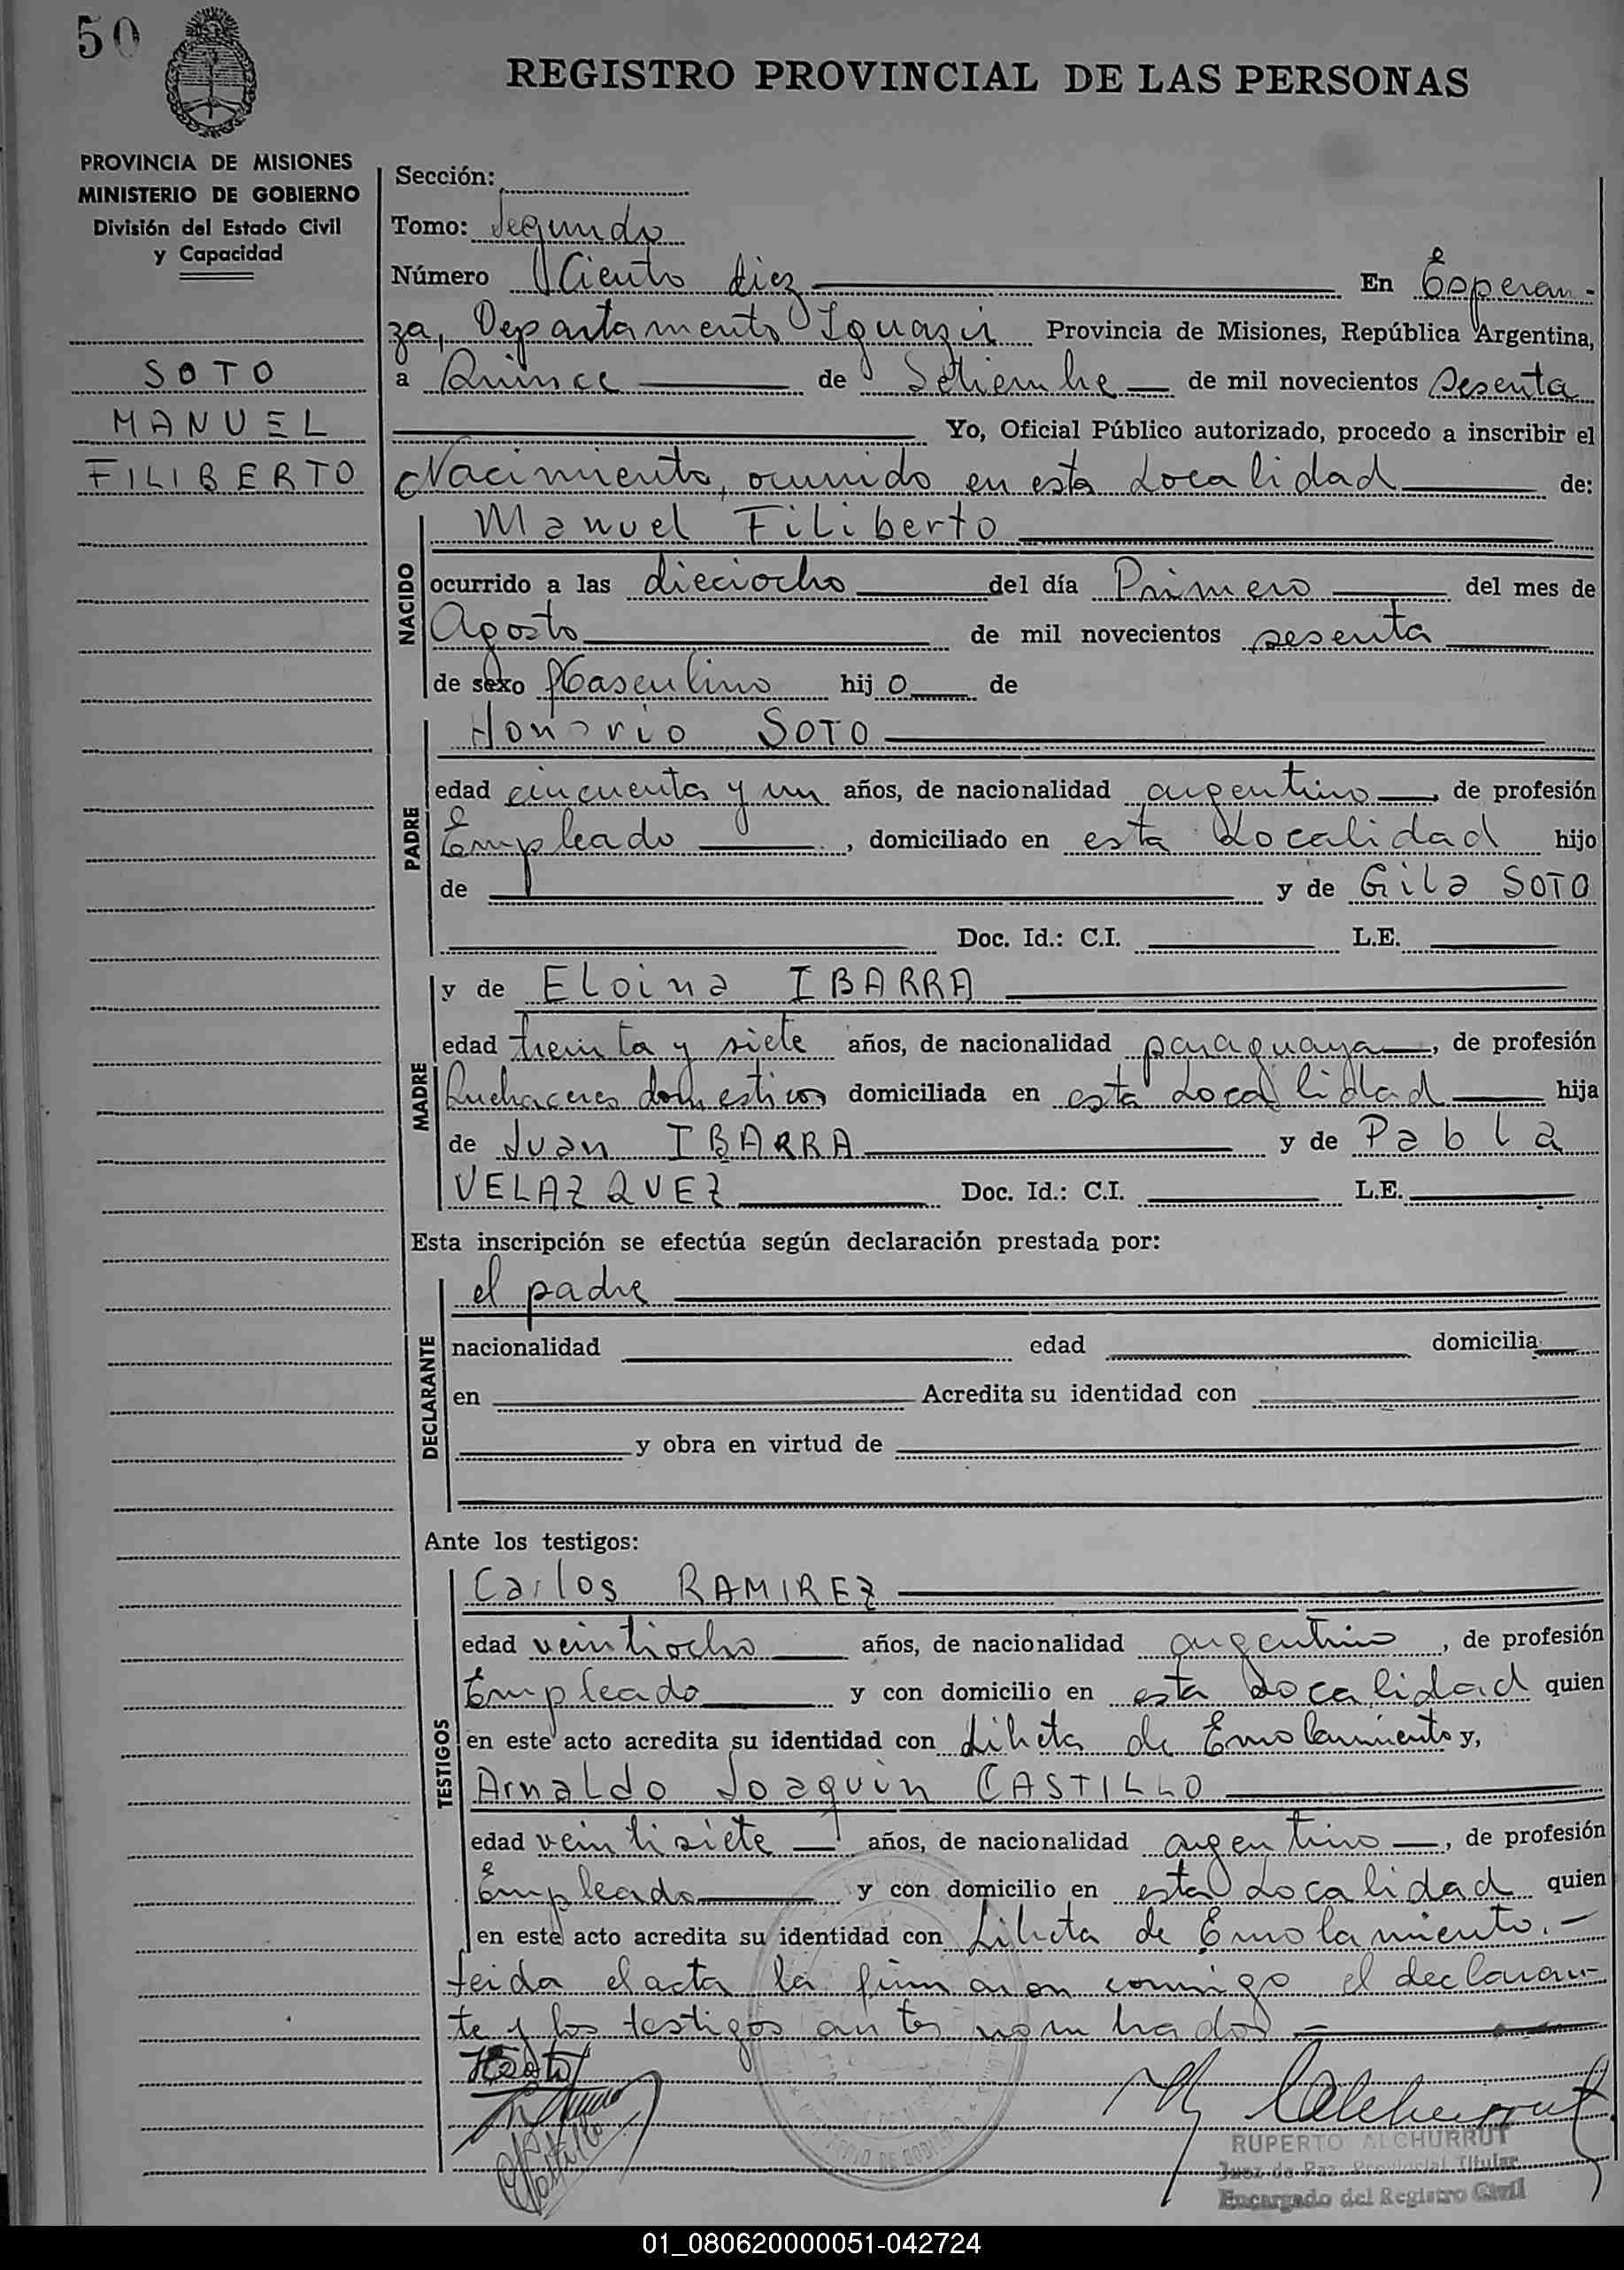 50
REGISTRO PROVINCIAL DE LAS PERSONAS
PROVINCIA DE MISIONES
MINISTERIO DE GOBIERNO
División del Estado Civil
y Capacidad
SOTO
MANUEL
FILIBERTO
Sección:
Tomo: Segundo
Número Ciento diez En Esperan-
za, Departamento Iguazú Provincia de Misiones, República Argentina,
a Quince de Setiembre de mil novecientos Sesenta
Yo, Oficial Público autorizado, procedo a inscribir el
Nacimiento, ocurrido en esta Localidad de:
NACIDO
Manuel Filiberto
ocurrido a las dieciocho del día Primero del mes de
Agosto de mil novecientos sesenta
de sexo Masculino hijo de
PADRE
Honorio SOTO
edad cincuenta y un años, de nacionalidad argentino, de profesión
Empleado, domiciliado en esta Localidad hijo
de y de Gila SOTO
Doc. Id.: C.I. L.E.
MADRE
y de Eloina IBARRA
edad treinta y siete años, de nacionalidad paraguaya, de profesión
Quehaceres domesticos domiciliada en esta Localidad hija
de Juan IBARRA y de Pabla
VELAZQUEZ Doc. Id.: C.I. L.E.
Esta inscripción se efectúa según declaración prestada por:
DECLARANTE
el padre
nacionalidad edad domicilia
en Acredita su identidad con
y obra en virtud de
Ante los testigos:
TESTIGOS
Carlos RAMIREZ
edad veintiocho años, de nacionalidad argentino, de profesión
Empleado y con domicilio en esta Localidad quien
en este acto acredita su identidad con Libreta de Enrolamiento y,
Arnaldo Joaquin CASTILLO
edad veintisiete años, de nacionalidad argentino, de profesión
Empleado y con domicilio en esta Localidad quien
en este acto acredita su identidad con Libreta de Enrolamiento.-
Leida el acta la firmaron conmigo el declaran-
te y los testigos antes nombrados
RUPERTO ALCHURRUT
Juez de Paz Provincial Titular
Encargado del Registro Civil
01_080620000051-042724